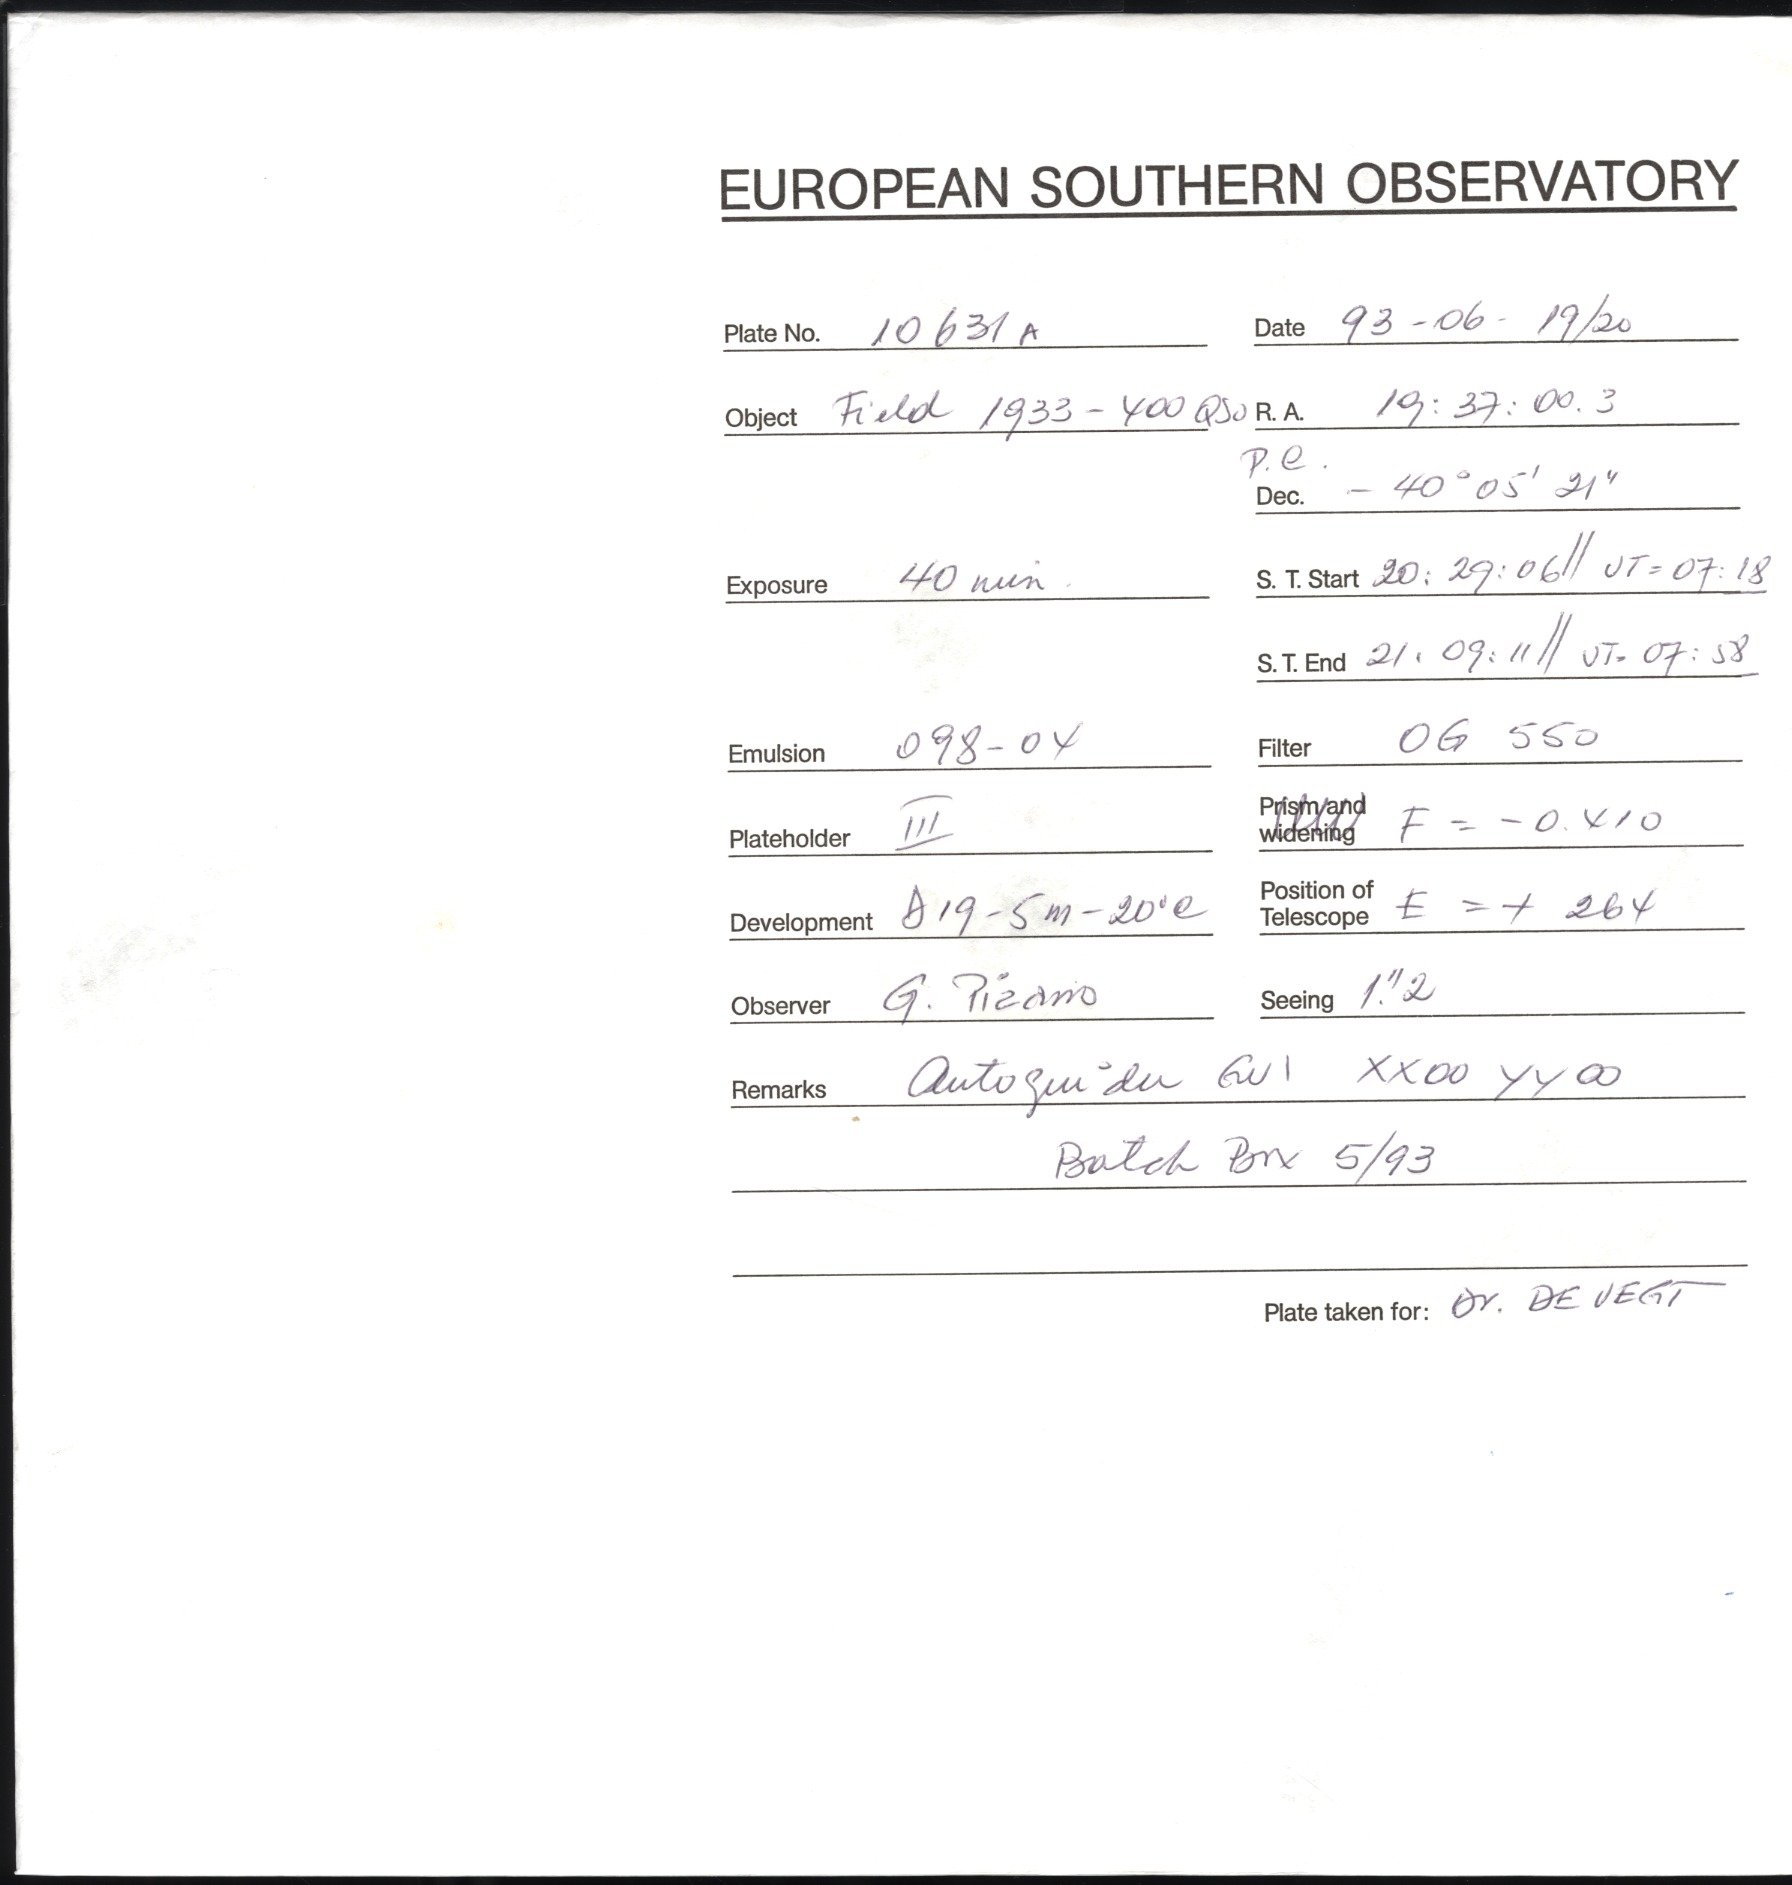 EUROPEAN SOUTHERN OBSERVATORY
Plate No. 10631A Date 93-06-19/20
Object Field 1933-400 QSO R. A. 19:37:00.3
P.C.
Dec. -40°05'21"
Exposure 40 min. S. T. Start 20:29:06// UT=07:18
S. T. End 21:09:11// UT=07:58
Emulsion 098-04 Filter OG 550
Plateholder III Prism and widening F = -0.410
Development D19-5m-20°C Position of Telescope E = + 264
Observer G. Pizarro Seeing 1."2
Remarks Autoguider XX00 YY00
Batch Box 5/93
Plate taken for: Dr. DE VEGT